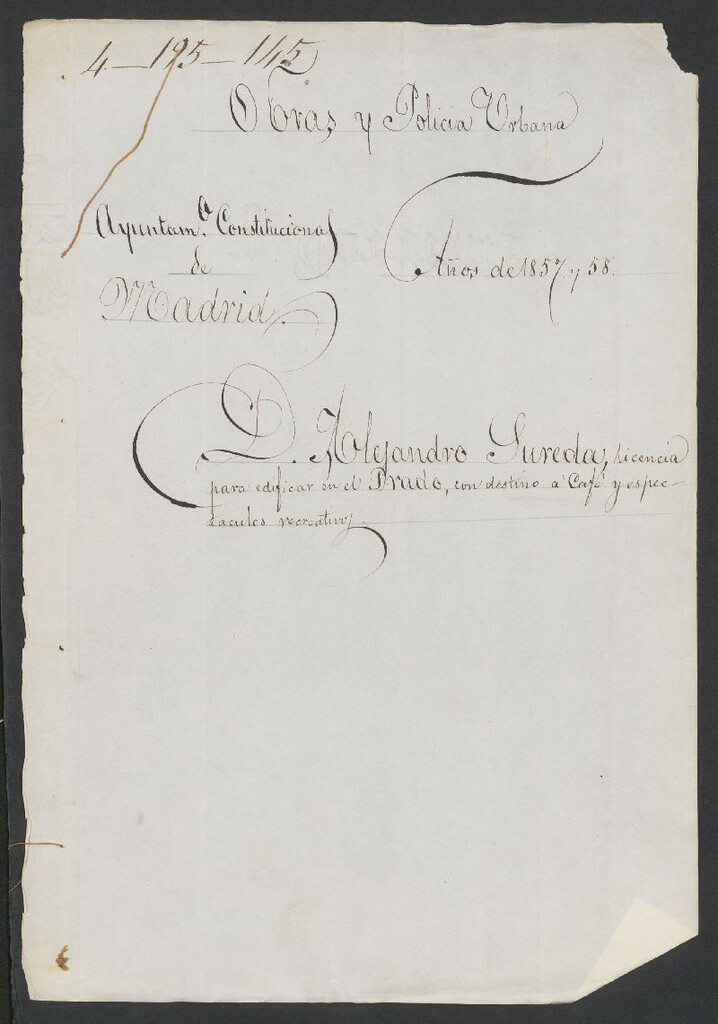 4-195-145
Obras y Policia Urbana
Ayuntam.º Constitucional
de
Madrid.
Años de 1857 y 58.
D. Alejandro Sureda, licencia
para edificar en el Prado, con destino a Café y espec-
taculos recreativos.